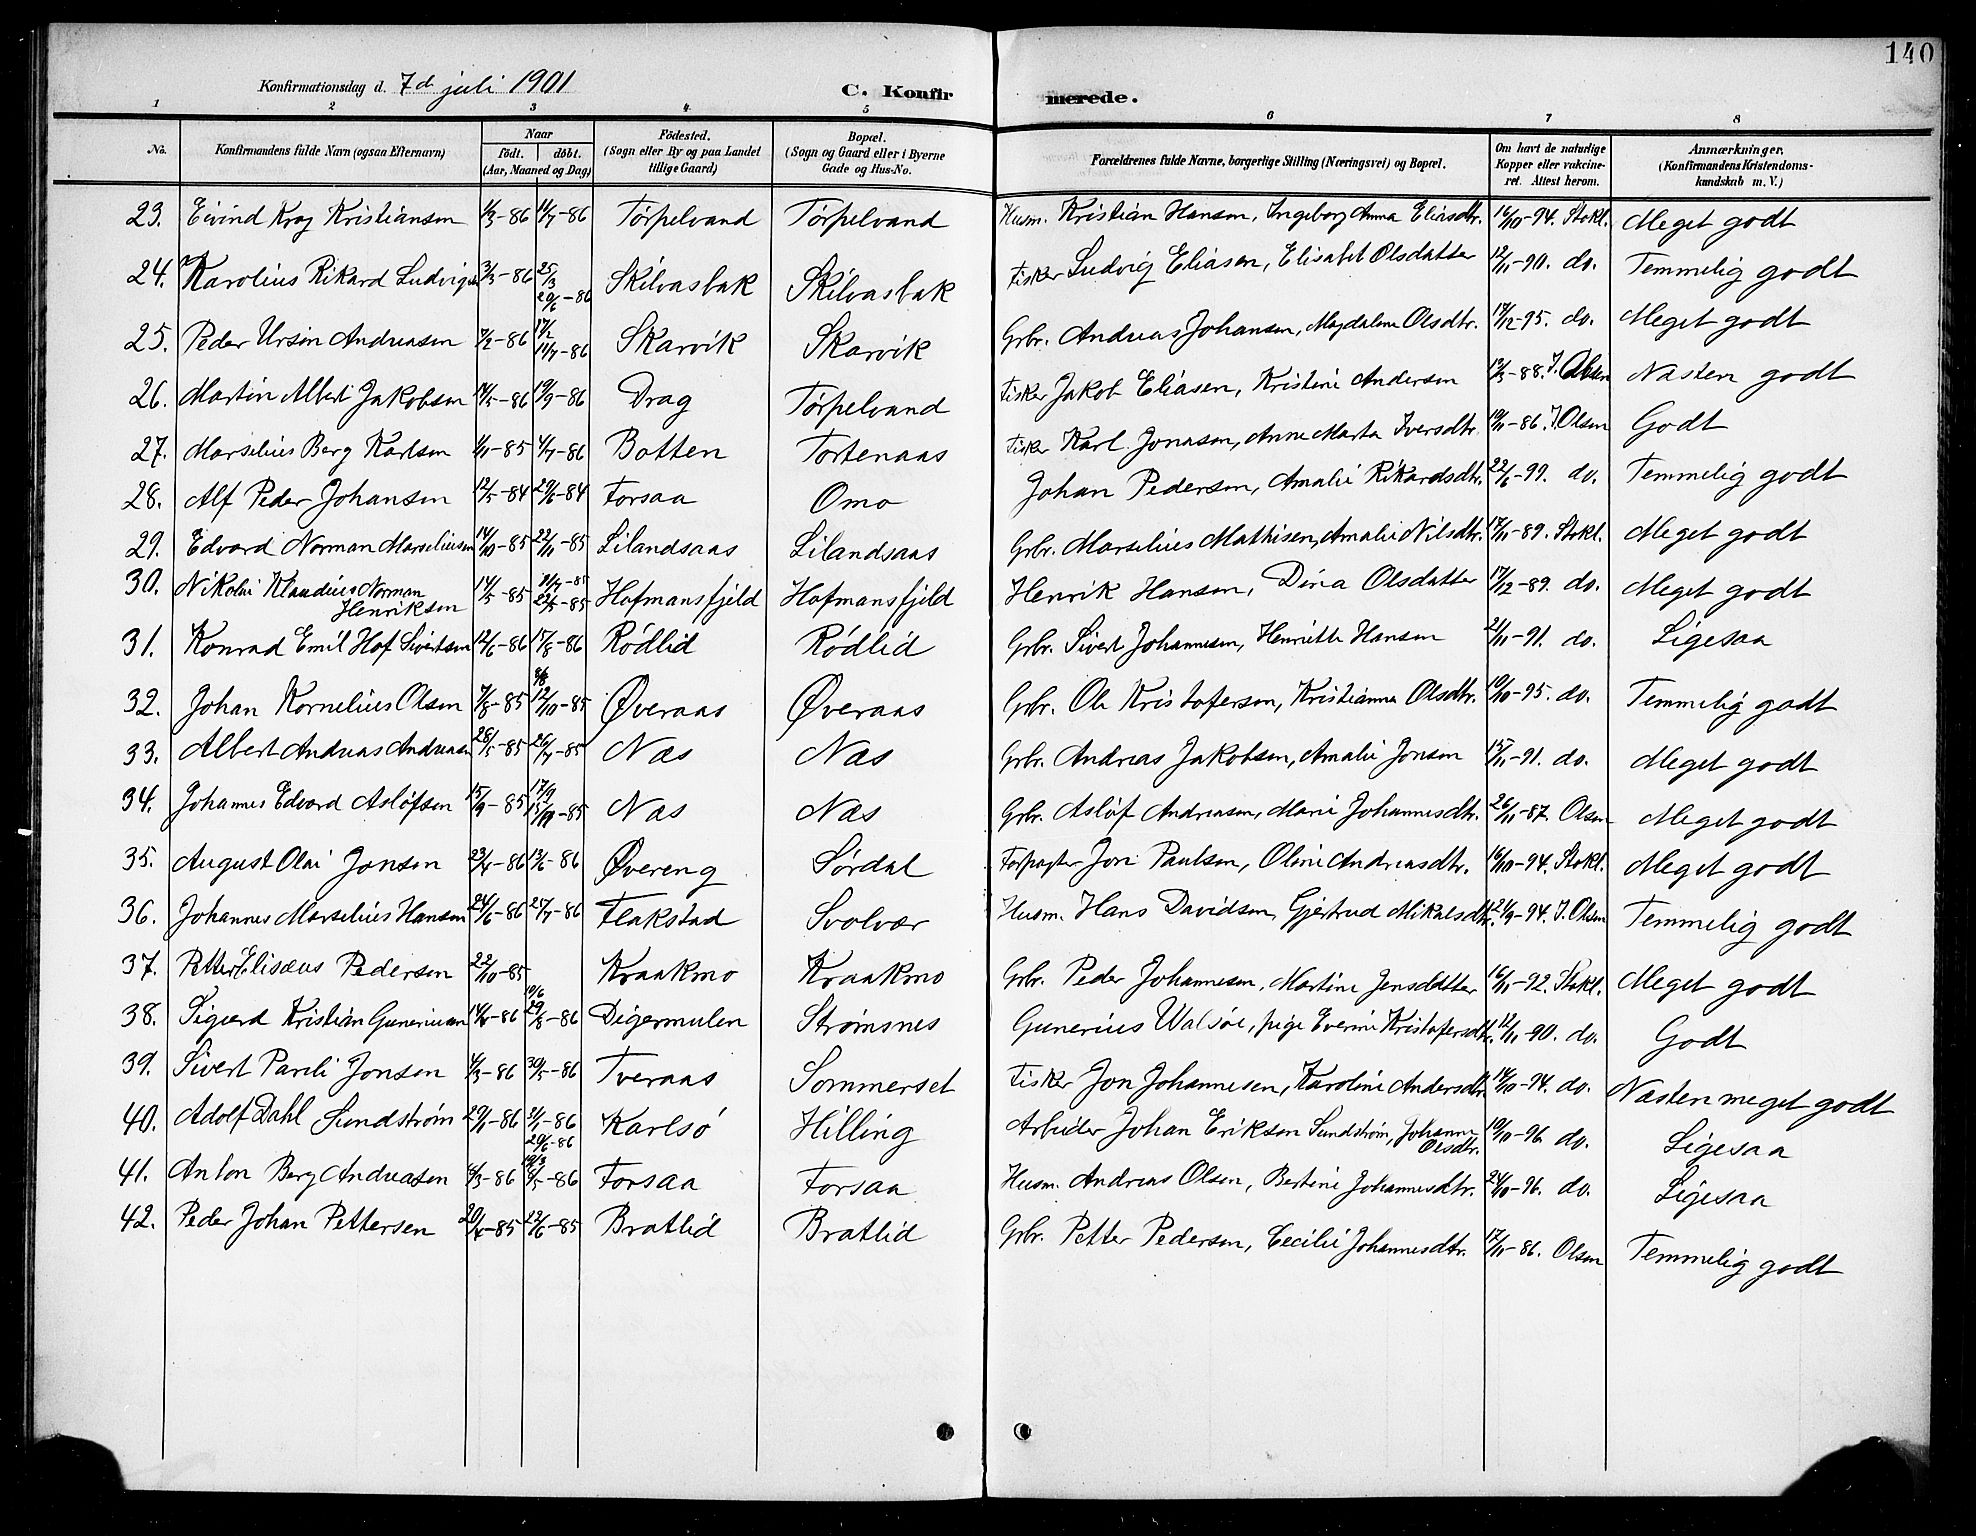 140
Konfirmationsdag d. 7d juli 1901
C. Konfirmerede.
1 2 3 4 5 6 7 8
No. Konfirmandens fulde Navn (ogsaa Efternavn) Naar født. døbt. (Aar, Maaned og Dag) Fødested. (Sogn eller By og paa Landet tillige Gaard) Bopæl. (Sogn og Gaard eller i Byerne Gade og Hus-No. Forældrenes fulde Navne, borgerlige Stilling (Næringsvei) og Bopæl. Om havt de naturlige Kopper eller vakcineret. Attest herom. Anmærkninger. (Konfirmandens Kristendomskundskab m. V.)
23. Eivind Krog Kristiansen 1/3-86 11/7-86 Tørpelvand Tørpelvand Husm. Kristian Hansen, Ingeborg Anna Eliasdtr. 16/10-94. Stokl. Meget godt
24. Karolius Rikard Ludvigsen 3/3-86 25/3 20/6-86 Skilvasbak Skilvasbak Fisker Ludvig Eliasen, Elisabet Olsdatter 12/11-90. do. Temmelig godt
25. Peder Ursin Andreasen 7/2-86 17/2 11/7-86 Skarvik Skarvik Grbr. Andreas Johansen, Magdalene Olsdtr. 17/12-95. do. Meget godt
26. Martin Albert Jakobsen 14/5-86 19/9-86 Drag Tørpelvand Fisker Jakob Eliasen, Kristine Andersen 12/3-88. J. Olsen Næsten godt
27. Marselius Berg Karlsen 1/11-85 4/7-86 Botten Tortenaas Fisker Karl Jonasen, Anne Marta Iversdtr. 19/11-86. J. Olsen Godt
28. Alf Peder Johansen 12/5-84 29/6-84 Forsaa Omo Johan Pedersen, Amalie Rikardsdtr. 22/6-99. do. Temmelig godt
29. Edvard Norman Marseliusen 14/10-85 22/11-85 Lilandsaas Lilandsaas Grbr. Marselius Mathisen, Amalie Nilsdtr. 17/11-89. Stokl. Meget godt
30. Nikolai Klaudius Norman Henriksen 14/5-85 Hofmansfjeld Hofmansfjeld Henrik Hansen, Dina Olsdatter 17/12-89. do. Meget godt
31. Konrad Emil Hof Sivertsen 12/6-86 15/8-86 Rødlid Rødlid Grbr. Sivert Johannesen, Henriette Hansen 21/11-91. do. Ligesaa
32. Johan Kornelius Olsen 7/8-85 9/8 12/10-85 Øveraas Øveraas Grbr. Ole Kristofersen, Kristianna Olsdtr. 19/10-95. do. Temmelig godt
33. Albert Andreas Andreasen 28/5-85 26/7-85 Næs Næs Grbr. Andreas Jakobsen, Amalie Jonsen 15/11-91. do. Meget godt
34. Johannes Edvard Asløfsen 15/9-85 17/9 Næs Næs Grbr. Asløf Andreasen, Marie Johannesdtr. 26/11-87. Olsen Meget godt
35. August Olai Jonsen 23/4-86 13/6-86 Øvereng Sørdal Forpagter Jon Paulsen, Oline Andreasdtr. 16/10-94. Stokl. Meget godt
36. Johannes Marselius Hansen 24/6-86 25/7-86 Flakstad Svolvær Husm. Hans Davidsen, Gjertrud Mikalsdtr. 21/9-94. J. Olsen Temmelig godt
37. Petter Elisæus Pedersen 22/10-85 Kraakmo Kraakmo Grbr. Peder Johannesen, Martine Jensdatter 16/11-92. Stokl. Meget godt
38. Sigurd Kristian Guneriusen 19/6 29/8-86 Digermulen Strømsnes Gunerius Walsøe, pige Everine Kristofersdtr. 12/11-90. do. Godt
39. Sivert Pareli Jonsen 4/3-86 30/5-86 Tveraas Sommerset Fisker Jon Johannesen, Karoline Andersdtr. 14/10-94. do. Næsten meget godt
40. Adolf Dahl Sundstrøm 29/1-86 31/1-86 20/6-86 Karlsø Hilling Arbeider Johan Erikson Sundstrøm, Johanna Olsdtr. 19/10-96. do. Ligesaa
41. Anton Berg Andreasen 6/3-86 19/3 8/5-86 Forsaa Forsaa Husm. Andreas Olsen, Bertine Johannesdtr. 24/10-96. do. Ligesaa
42. Peder Johan Pettersen 20/4-85 22/6-85 Bratlid Bratlid Grbr. Petter Pedersen, Cecilie Johannesdtr. 17/11-86. Olsen Temmelig godt